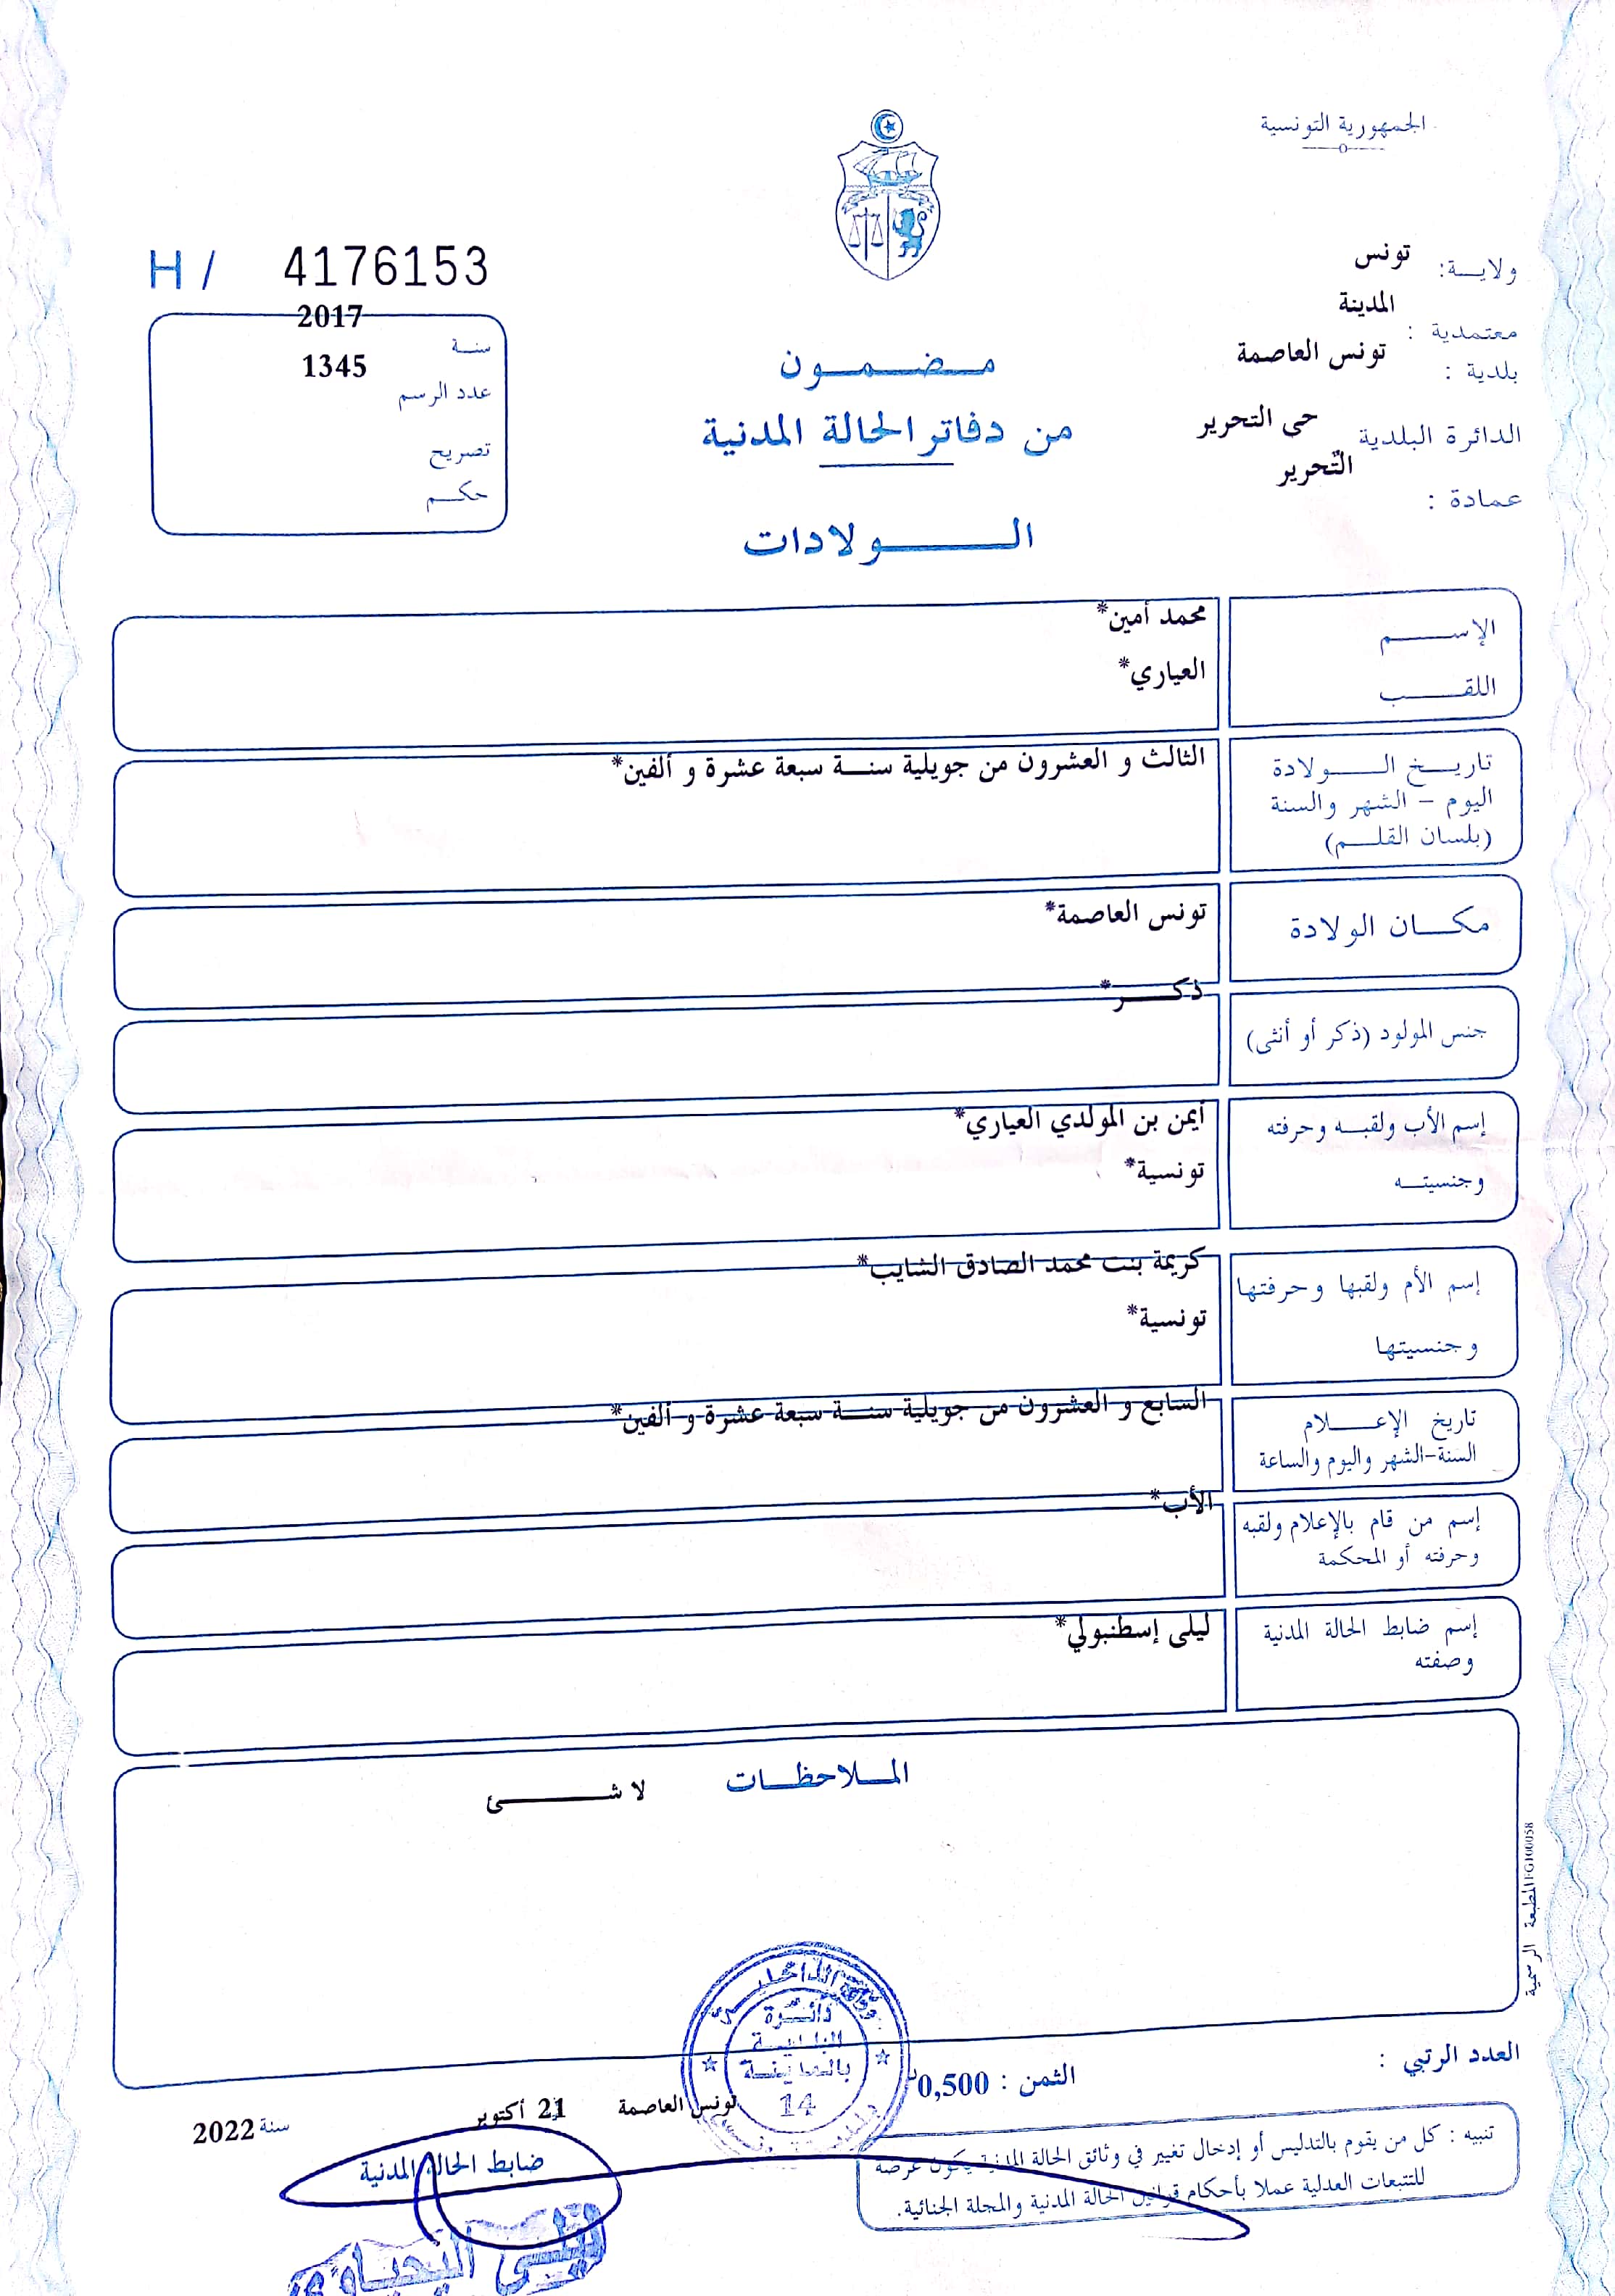 الجمهورية التونسية
ولايـة: تونس
معتمدية : المدينة
بلدية : تونس العاصمة
الدائرة البلدية حى التحرير
عمادة : التّحرير
H / 4176153
سنة 2017
عدد الرسم 1345
تصريح
حكم
مضمون
من دفاتر الحالة المدنية
الولادات
الإسم محمد أمين*
اللقب العياري*
تاريخ الولادة الثالث و العشرون من جويلية سنة سبعة عشرة و ألفين*
اليوم - الشهر والسنة
(بلسان القلم)
مكان الولادة تونس العاصمة*
جنس المولود (ذكر أو أنثى) ذكر*
إسم الأب ولقبه وحرفته أيمن بن المولدي العياري*
وجنسيته تونسية*
إسم الأم ولقبها وحرفتها كريمة بنت محمد الصادق الشايب*
وجنسيتها تونسية*
تاريخ الإعلام السابع و العشرون من جويلية سنة سبعة عشرة و ألفين*
السنة-الشهر واليوم والساعة
إسم من قام بالإعلام ولقبه الأب*
وحرفته أو المحكمة
إسم ضابط الحالة المدنية ليلى إسطنبولي*
وصفته
الملاحظات
لا شئ
المطبعة الرسمية
وزارة الداخلية
دائرة
البلدية
بالمدينة
14
العدد الرتبي :
الثمن : 0,500
تونس العاصمة 21 أكتوبر سنة 2022
ضابط الحالة المدنية
تنبيه : كل من يقوم بالتدليس أو إدخال تغيير في وثائق الحالة المدنية يكون عرضة
للتتبعات العدلية عملا بأحكام قوانين الحالة المدنية والمجلة الجنائية.